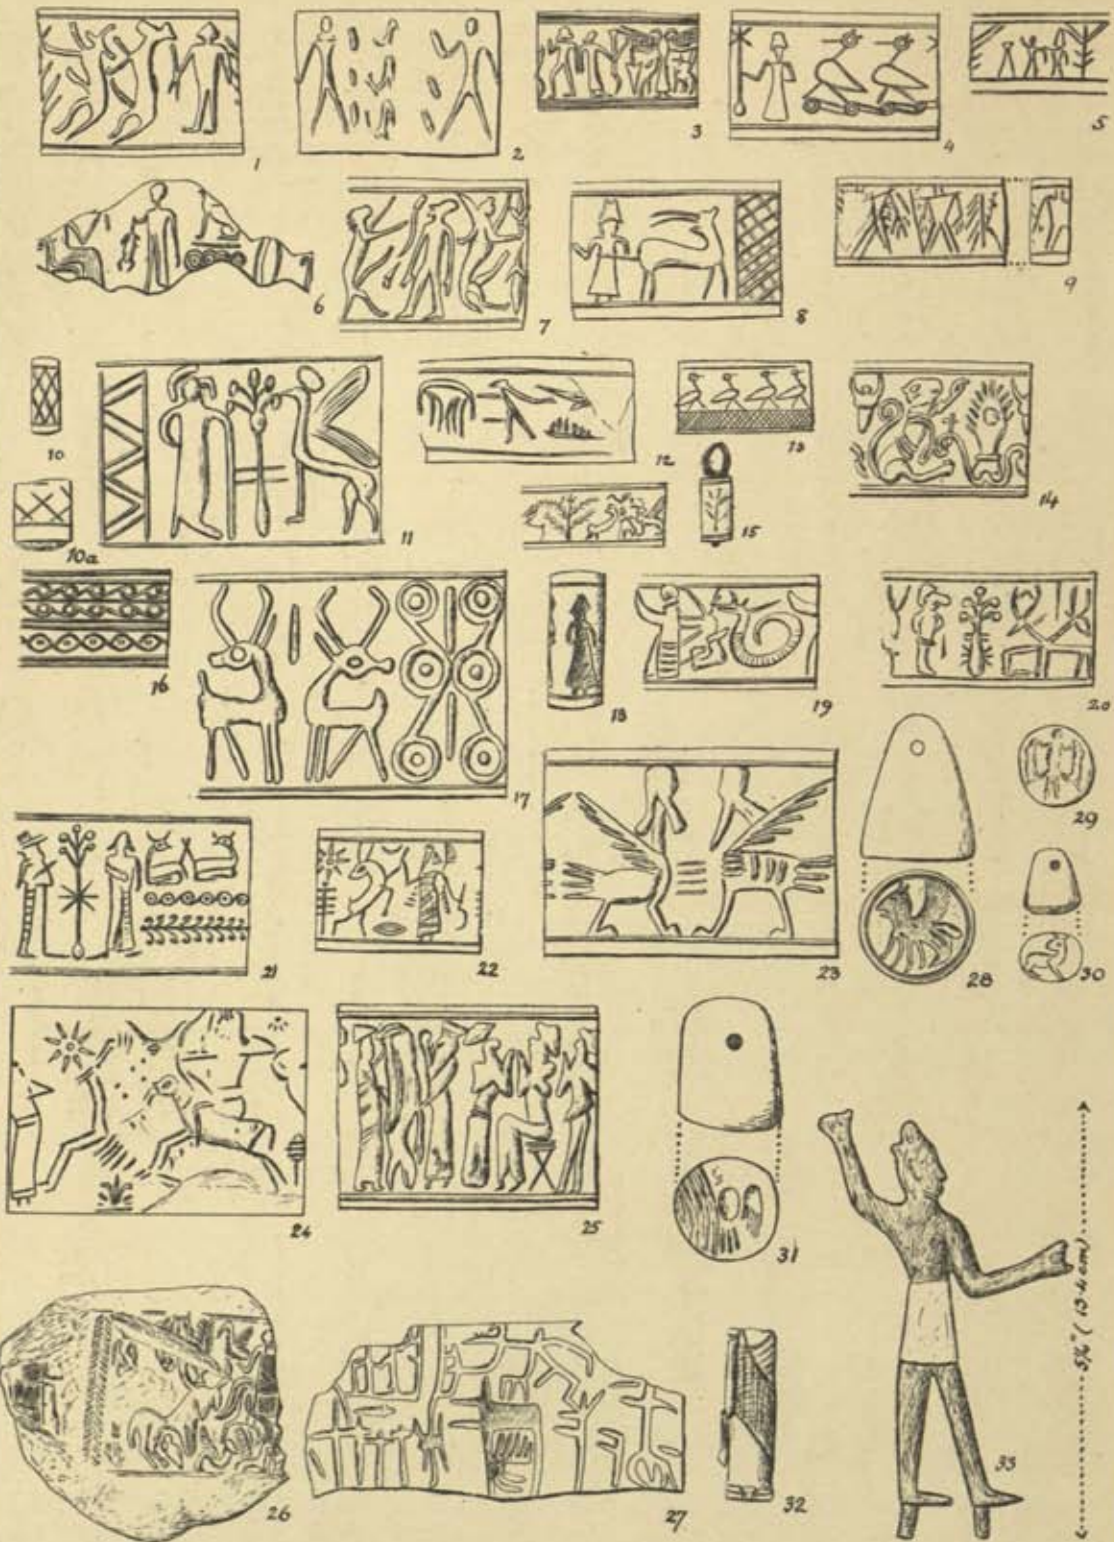 1
2
3
4
5
6
7
8
9
10
10a
11
12
13
14
15
16
17
18
19
20
21
22
23
24
25
26
27
28
29
30
31
32
33
(13·4 cm)